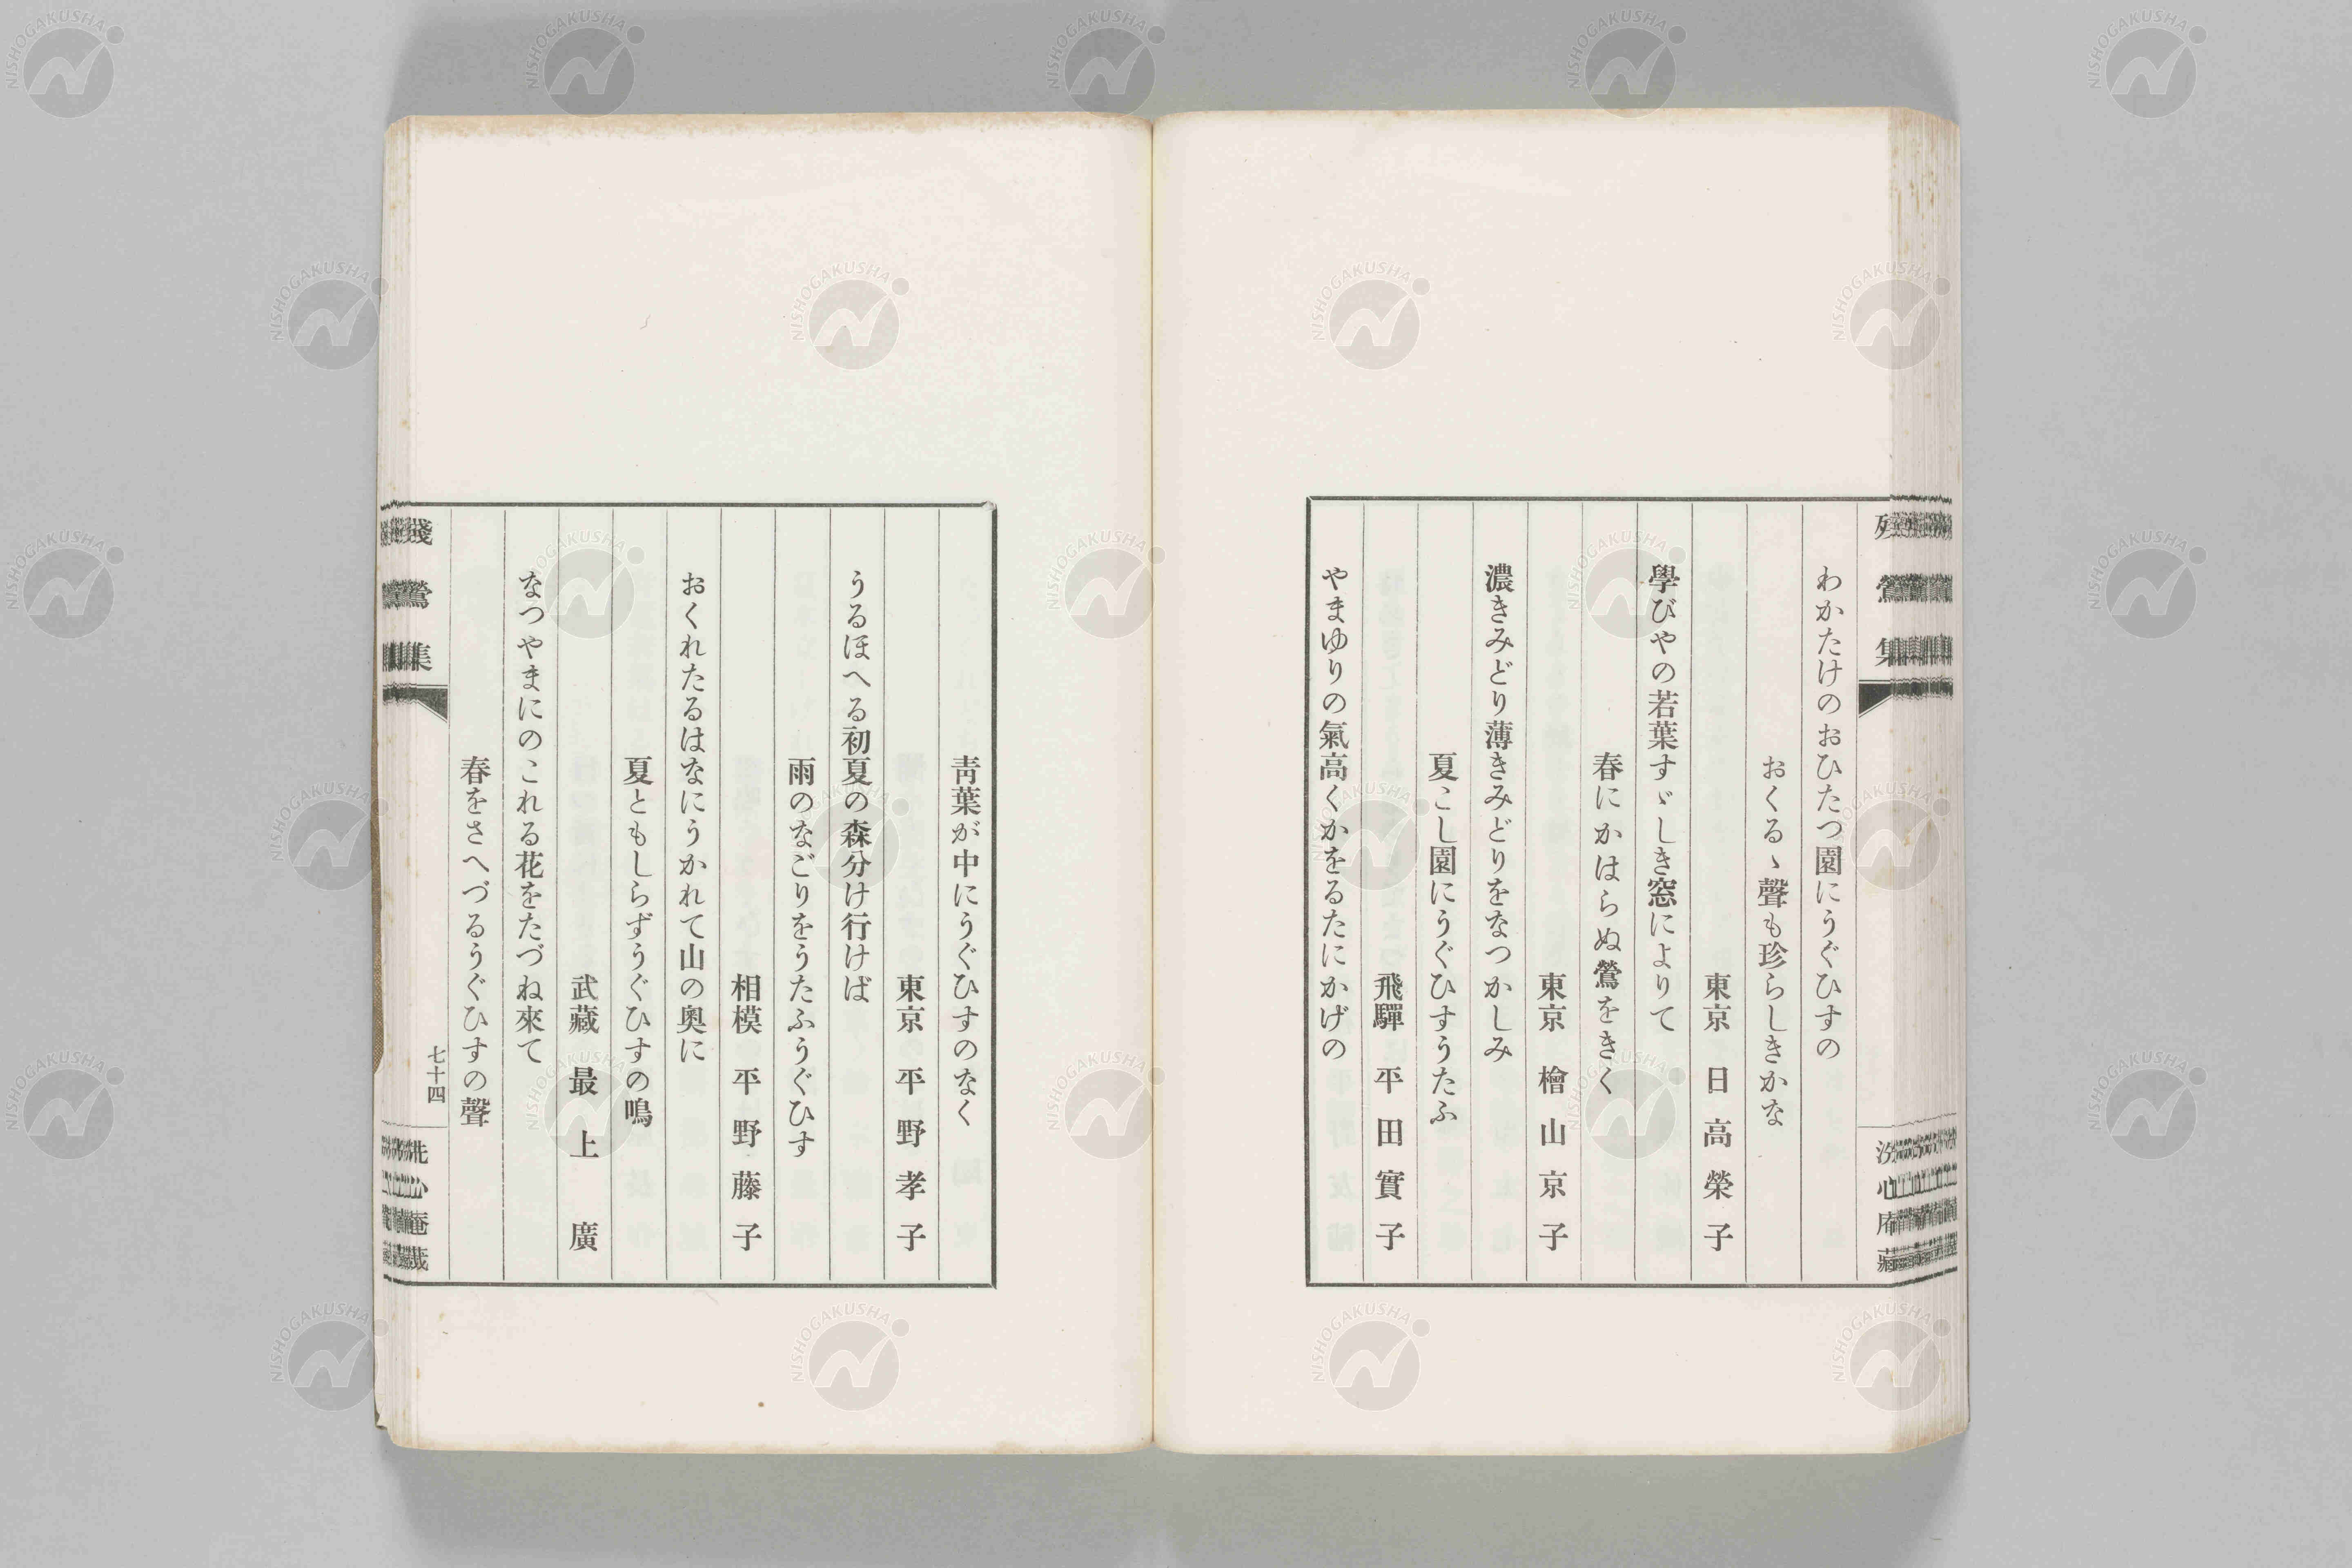 わかたけのおひたつ園にうぐひすの
おくるゝ聲も珍らしきかな
東京 日高榮子
學びやの若葉すゞしき窓によりて
春にかはらぬ鶯をきく
東京 檜山京子
濃きみどり薄きみどりをなつかしみ
夏こし園にうぐひすうたふ
飛驒 平田實子
やまゆりの氣高くかをるたにかげの
靑葉が中にうぐひすのなく
東京 平野孝子
うるほへる初夏の森分け行けば
雨のなごりをうたふうぐひす
相模 平野藤子
おくれたるはなにうかれて山の奧に
夏ともしらずうぐひすの鳴
武藏 最上廣
なつやまにのこれる花をたづね來て
春をさへづるうぐひすの聲
殘鶯集
七十四
洗心庵藏
NISHOGAKUSHA